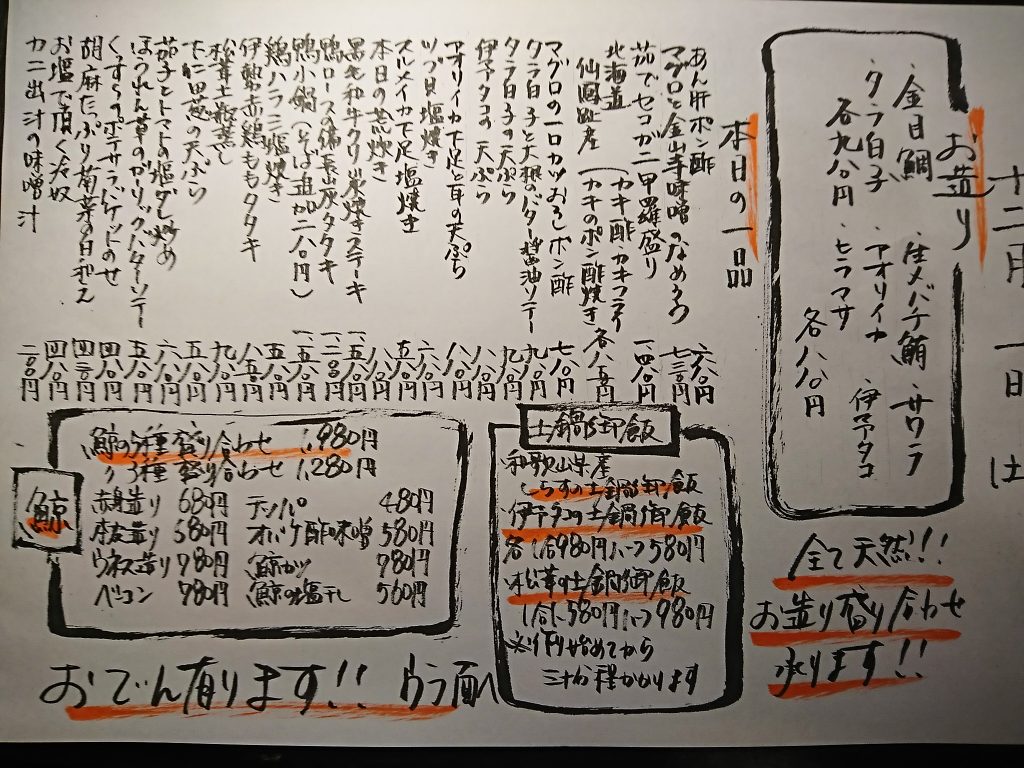 十二月一日は
お造り
・金目鯛 ・生メバチ鮪 ・サワラ
・タラ白子 ・アオリイカ ・伊予タコ
各九八〇円 ・ヒラマサ
各八八〇円
全て天然!!!
お造り盛り合わせ
承ります!!
本日の一品
あん肝ポン酢 六八〇円
マグロと金山寺味噌のなめろう 七三〇円
茹でセコガニ甲羅盛り 一、四八〇円
北海道
仙鳳趾産
(カキ酢・カキフライ
(カキのポン酢焼き 各八五〇円
マグロの一口カツおろしポン酢 七八〇円
タラ白子と大根のバター醤油ソテー 九八〇円
タラ白子の天ぷら 九八〇円
伊予タコの天ぷら 八八〇円
アオリイカ下足と耳の天ぷら 八八〇円
ツブ貝塩焼き 六八〇円
スルメイカ下足塩焼き 五八〇円
本日の荒炊き 八八〇円
黒毛和牛クリ炭焼きステーキ 一、五八〇円
鴨ロースの藁炭タタキ 一、二八〇円
鴨小鍋(そば追加二八〇円) 一、五八〇円
鶏ハラミ塩焼き 五八〇円
伊勢赤鶏ももタタキ 八五〇円
松茸土瓶蒸し 九八〇円
下仁田葱の天ぷら 五八〇円
茄子とトマトの塩ダレ炒め 六八〇円
ほうれん草のガーリックバターソテー 五八〇円
くずし ポテサラバケットのせ 四八〇円
胡麻たっぷり菊菜の白和え 四三〇円
お塩で頂く冷奴 四八〇円
カニ出汁の味噌汁 二八〇円
土鍋御飯
和歌山県産
しらすの土鍋御飯
伊予タコの土鍋御飯
各1合980円ハーフ580円
松茸の土鍋御飯
1合1,580円ハーフ980円
※作り始めてから
三十分程かかります
鯨
鯨の5種盛り合わせ 1,980円
〃3種盛り合わせ 1,280円
赤身造り 680円 テッパ 480円
本皮造り 580円 オバケ酢味噌 580円
ウネス造り 780円 鯨かつ 780円
ベーコン 780円 鯨の塩干し 560円
おでん有ります!! ウラ面へ